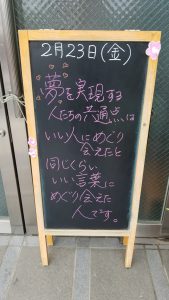 2月23日(金)
夢を実現する
人たちの共通点は
いい人にめぐり
会えたと
同じくらい
いい言葉に
めぐり会えた
人です。